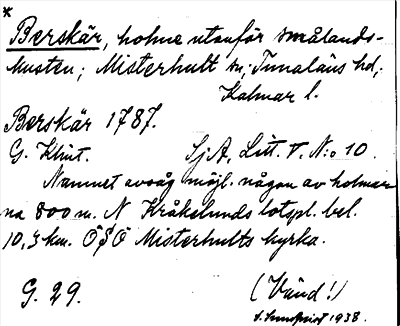 *
Berskär, holme utanför smålands-
kusten; Misterhult sn; Tunaläns hd,
Kalmar l.
Berskär 1787.
G. Klint. SjA, Litt. V. N:o 10.
Namnet avsåg möjl. någon av holmar
na 800 m. N Kråkelunds lotspl. bel.
10,3 km. ÖSÖ Misterhults kyrka.
G. 29. (Vänd!)
1938.